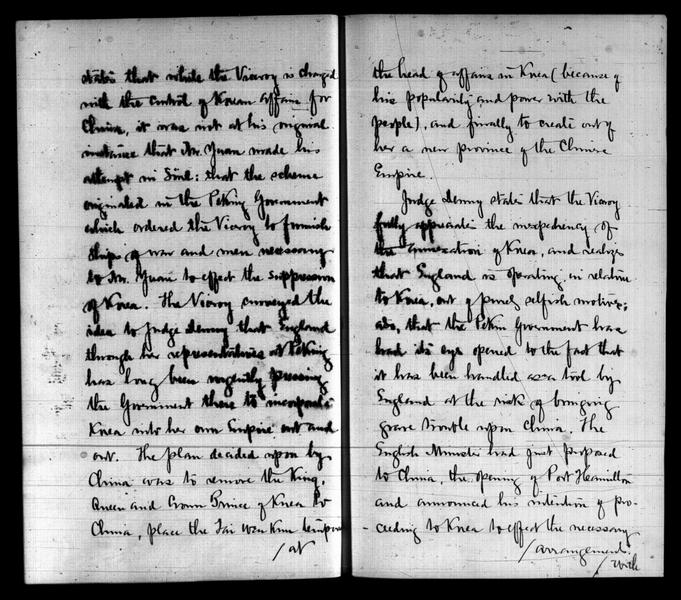 states that while the Viceroy is charged
with the control of Korean affairs for
China, it was not at his original
instance that Mr. Yuan made his
attempt in Söul: that the scheme
originated in the Peking Government
which ordered the Viceroy to furnish
ships of war and men necessary
to Mr. Yuan to effect the suppression
of Korea. The Viceroy conveyed the
idea to Judge Denny that England
through her representatives at Peking
has long been urgently pressing
the Government there to incorporate
Korea into her own Empire out and
out. The plan decided upon by
China was to remove the King,
Queen and Crown Prince of Korea to
China, place the Tai Won Kun
/at
the head of affairs in Korea (because of
his popularity and power with the
people), and finally to create out of
her a new province of the Chinese
Empire.
Judge Denny states that the Viceroy
fully appreciates the inexpediency of
the annexation of Korea, and realizes
that England is operating, in relation
to Korea, out of purely selfish motives;
also, that the Pekin Government has
had its eyes opened to the fact that
it has been handled as a tool by
England at the risk of bringing
grave trouble upon China. The
English Minister had just proposed
to China, the opening of Port Hamilton
and announced his intention of pro-
ceeding to Korea to effect the necessary
/arrangements
/with